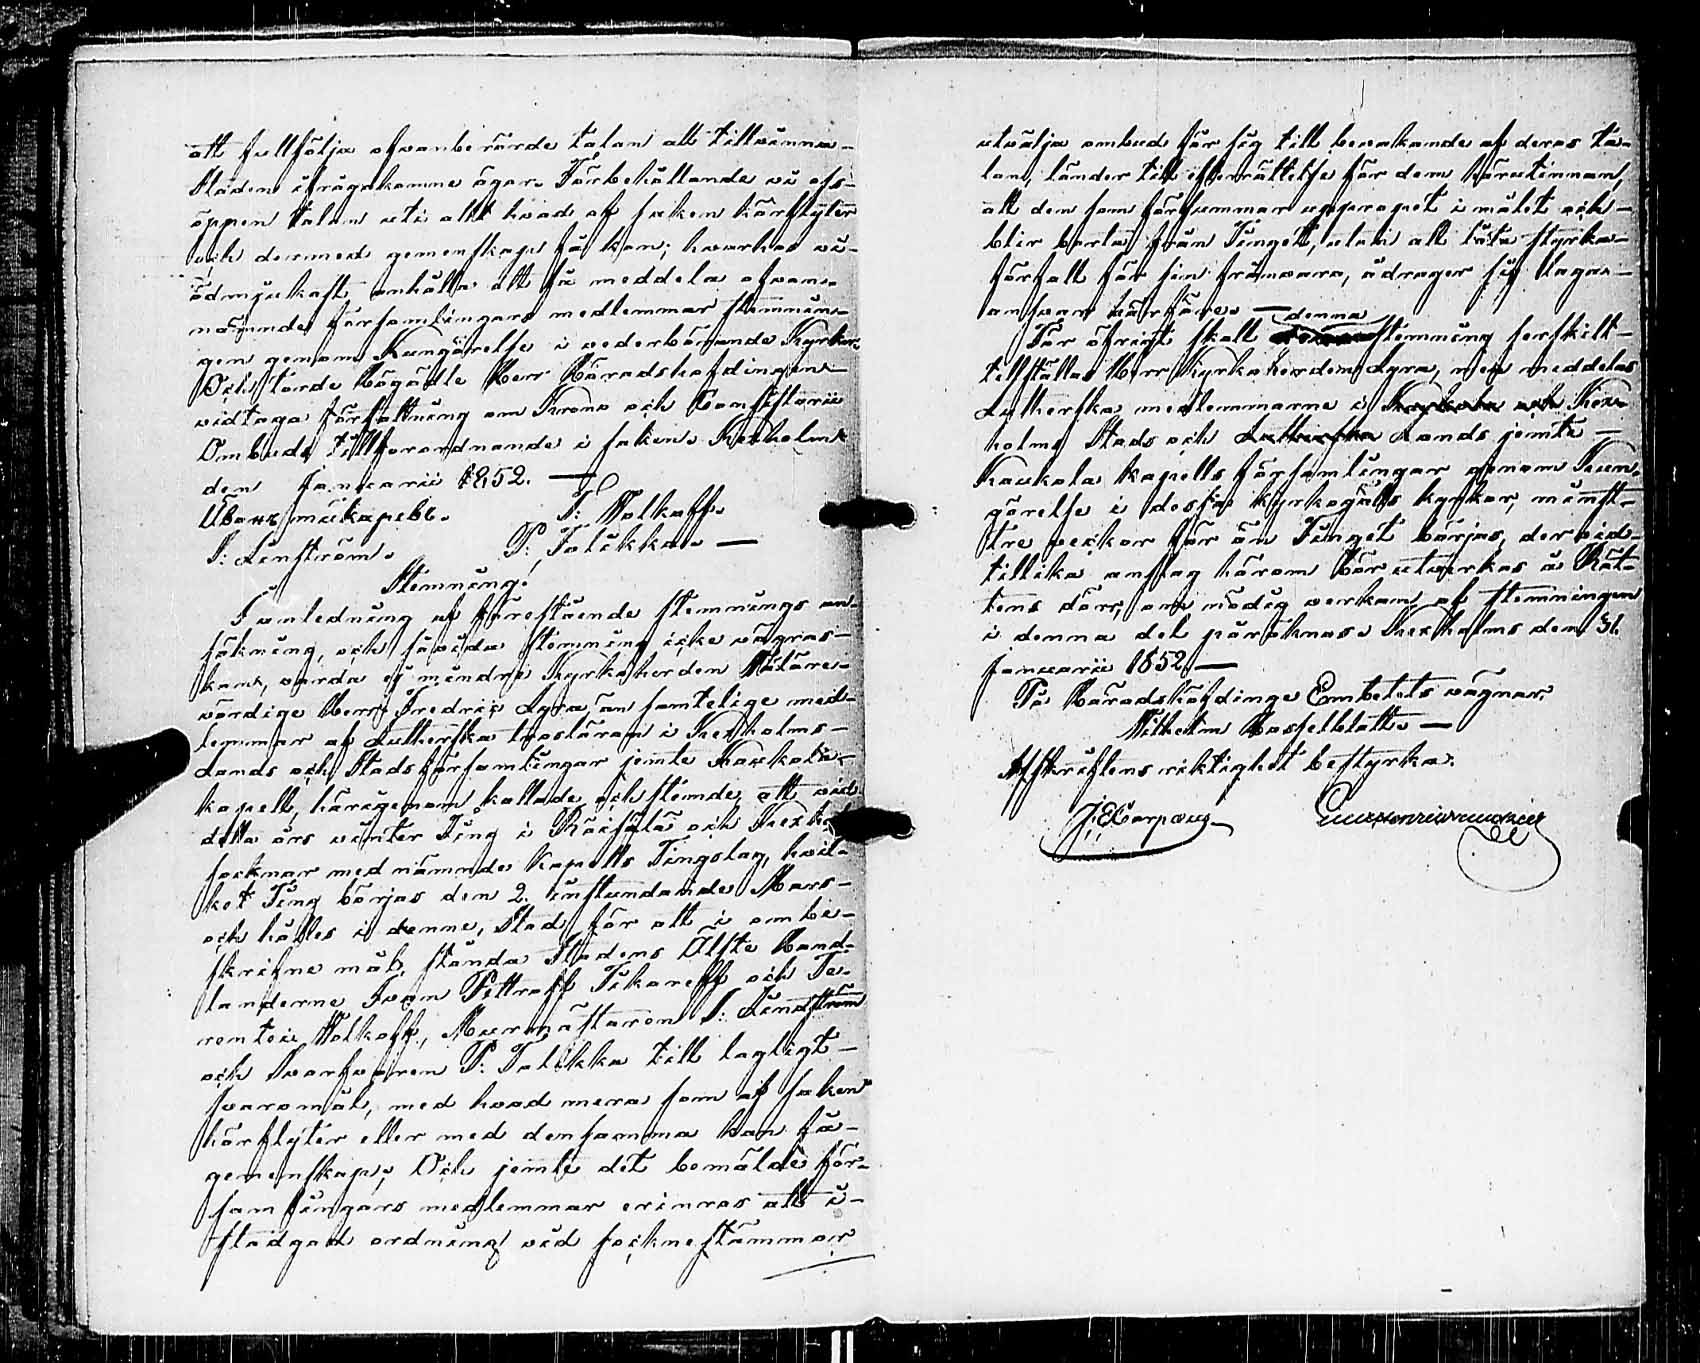 att fullfölja ofvanberörde talan att tillvinna-
Staden ifrågakomne ägor. Förbehållande vi oss-
öppen talan uti allt hvad af saken härflyter
och dermed gemenskap få kan; hvarhos vi-
ödmjukast anhålla att få meddela ofvan-
nämnde församlingars medlemmar stemmin-
gen genom Kungörelse i vederbörande Kyrkor.
Och torde Högädle Herr Häradshöfdingen
vidtaga författning om Krono och Consistorii
Ombuds tillforordnande i saken. Kexholm
den Januarii 1852. —
Иванъ тикаревъ. T: Wolkoff.
S: Linström. P: Talikka. —
Stemning!
I anledning af förestående stemnings an-
sökning, och såvida stemning icke vägras-
kan, varda ej mindre Kyrkoherden Välläre-
vördige Herr Fredric Lyra, än samtelige med-
lemmar af Lutherska trosläran i Kexholms-
Lands och Stads församlingar jemte Kaukola-
kapell, härigenom kallade och stemde, att vid
detta års vinter Ting i Räisälä och Kexholms
socknar med nämnde Kapells Tingslag, hvil-
ket Ting börjas den 2. instundande Mars-
och hålles i denne, Stad, för att i ombe-
skrifne mål, stånda Stadens Älste Hand-
landerne Ivan Pettroff Tikareff och Te-
rentei Wolkoff, Murmästaren S: Lindström
och Svarfvaren P: Talikka till lagligt-
svaromål, med hvad mera som af saken
härflyter eller med densamma kan få-
gemenskap; Och jemte det bemälde för-
samlingars medlemmar erinras att i-
stadgad ordning vid sockne stämmor
utvälja ombud för sig till bevakande af deras ta-
lan, länder till efterrättelse för dem härutinnan,
att den som försummar uppropet i målet och-
blir borta från Tinget, utan att låta styrka-
förfall för sin frånvaro, ådrager sig laga-
ansvar härföre. —
För öfrigt skall denna stemning serskilt-
tillställas Herr Kyrkoherden Lyra, men meddelas
Lutherska medlemmarne i Kex-
holms Stads och Lands jemte —
Kaukola kapells församlingar genom Kun-
görelse i dessa kyrkogälls kyrkor, minst-
tre veckor för än Tinget börjas, der vid-
tillika anslag härom bör utverkas å Rät-
tens dörr, om nödig verkan af stemningen
i denna del påräknas. Kexholms den 31.
Januarii 1852. —
På Häradshöfdinge Embetets vägnar,
Wilhelm Hasselblatt. —
Afskriftens riktighet bestyrka: